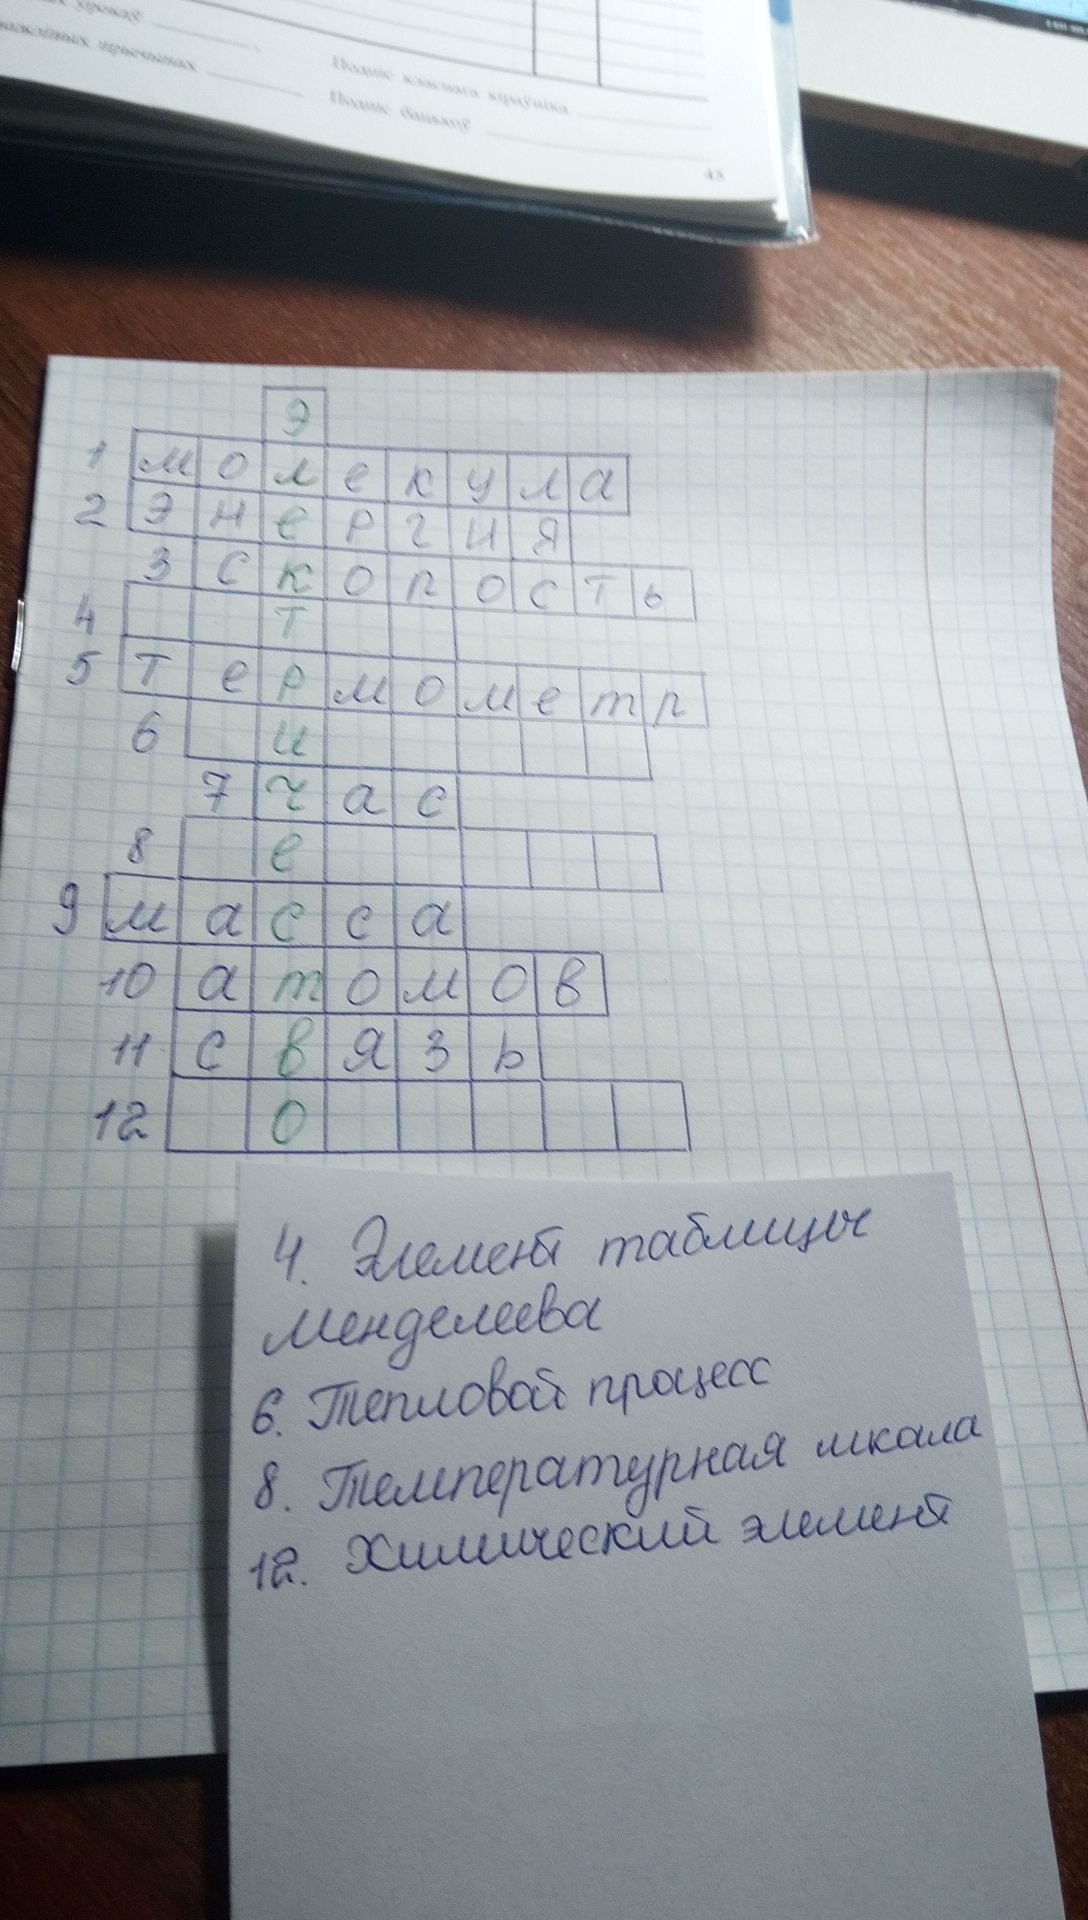 Подпіс класнага кіраўніка
Подпіс бацькоў
45
Э
1 молекула
2 энергия
3 скорость
4 т
5 термометр
6 и
7 час
8 е
9 масса
10 атомов
11 связь
12 о
4. Элемент таблицы
Менделеева
6. Тепловой процесс
8. Температурная шкала
12. Химический элемент